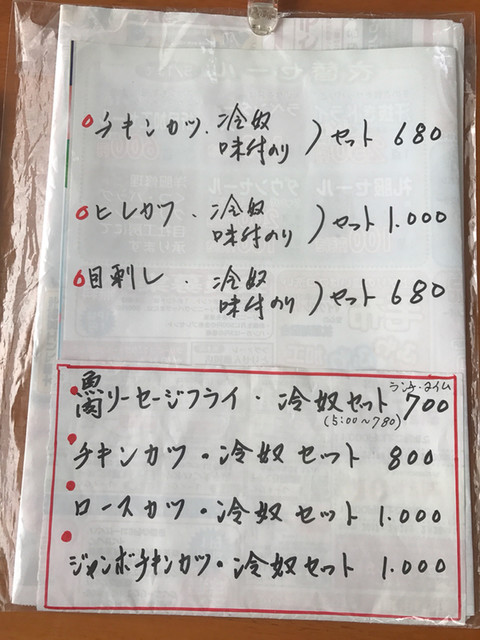 チキンカツ・冷奴
味付のり
)セット 680
ヒレカツ・冷奴
味付のり
)セット 1.000
目刺し・冷奴
味付のり
)セット 680
ランチ・タイム
魚肉ソーセージフライ・冷奴セット 700
(5:00〜780)
チキンカツ・冷奴セット 800
ロースカツ・冷奴セット 1.000
ジャンボチキンカツ・冷奴セット 1.000